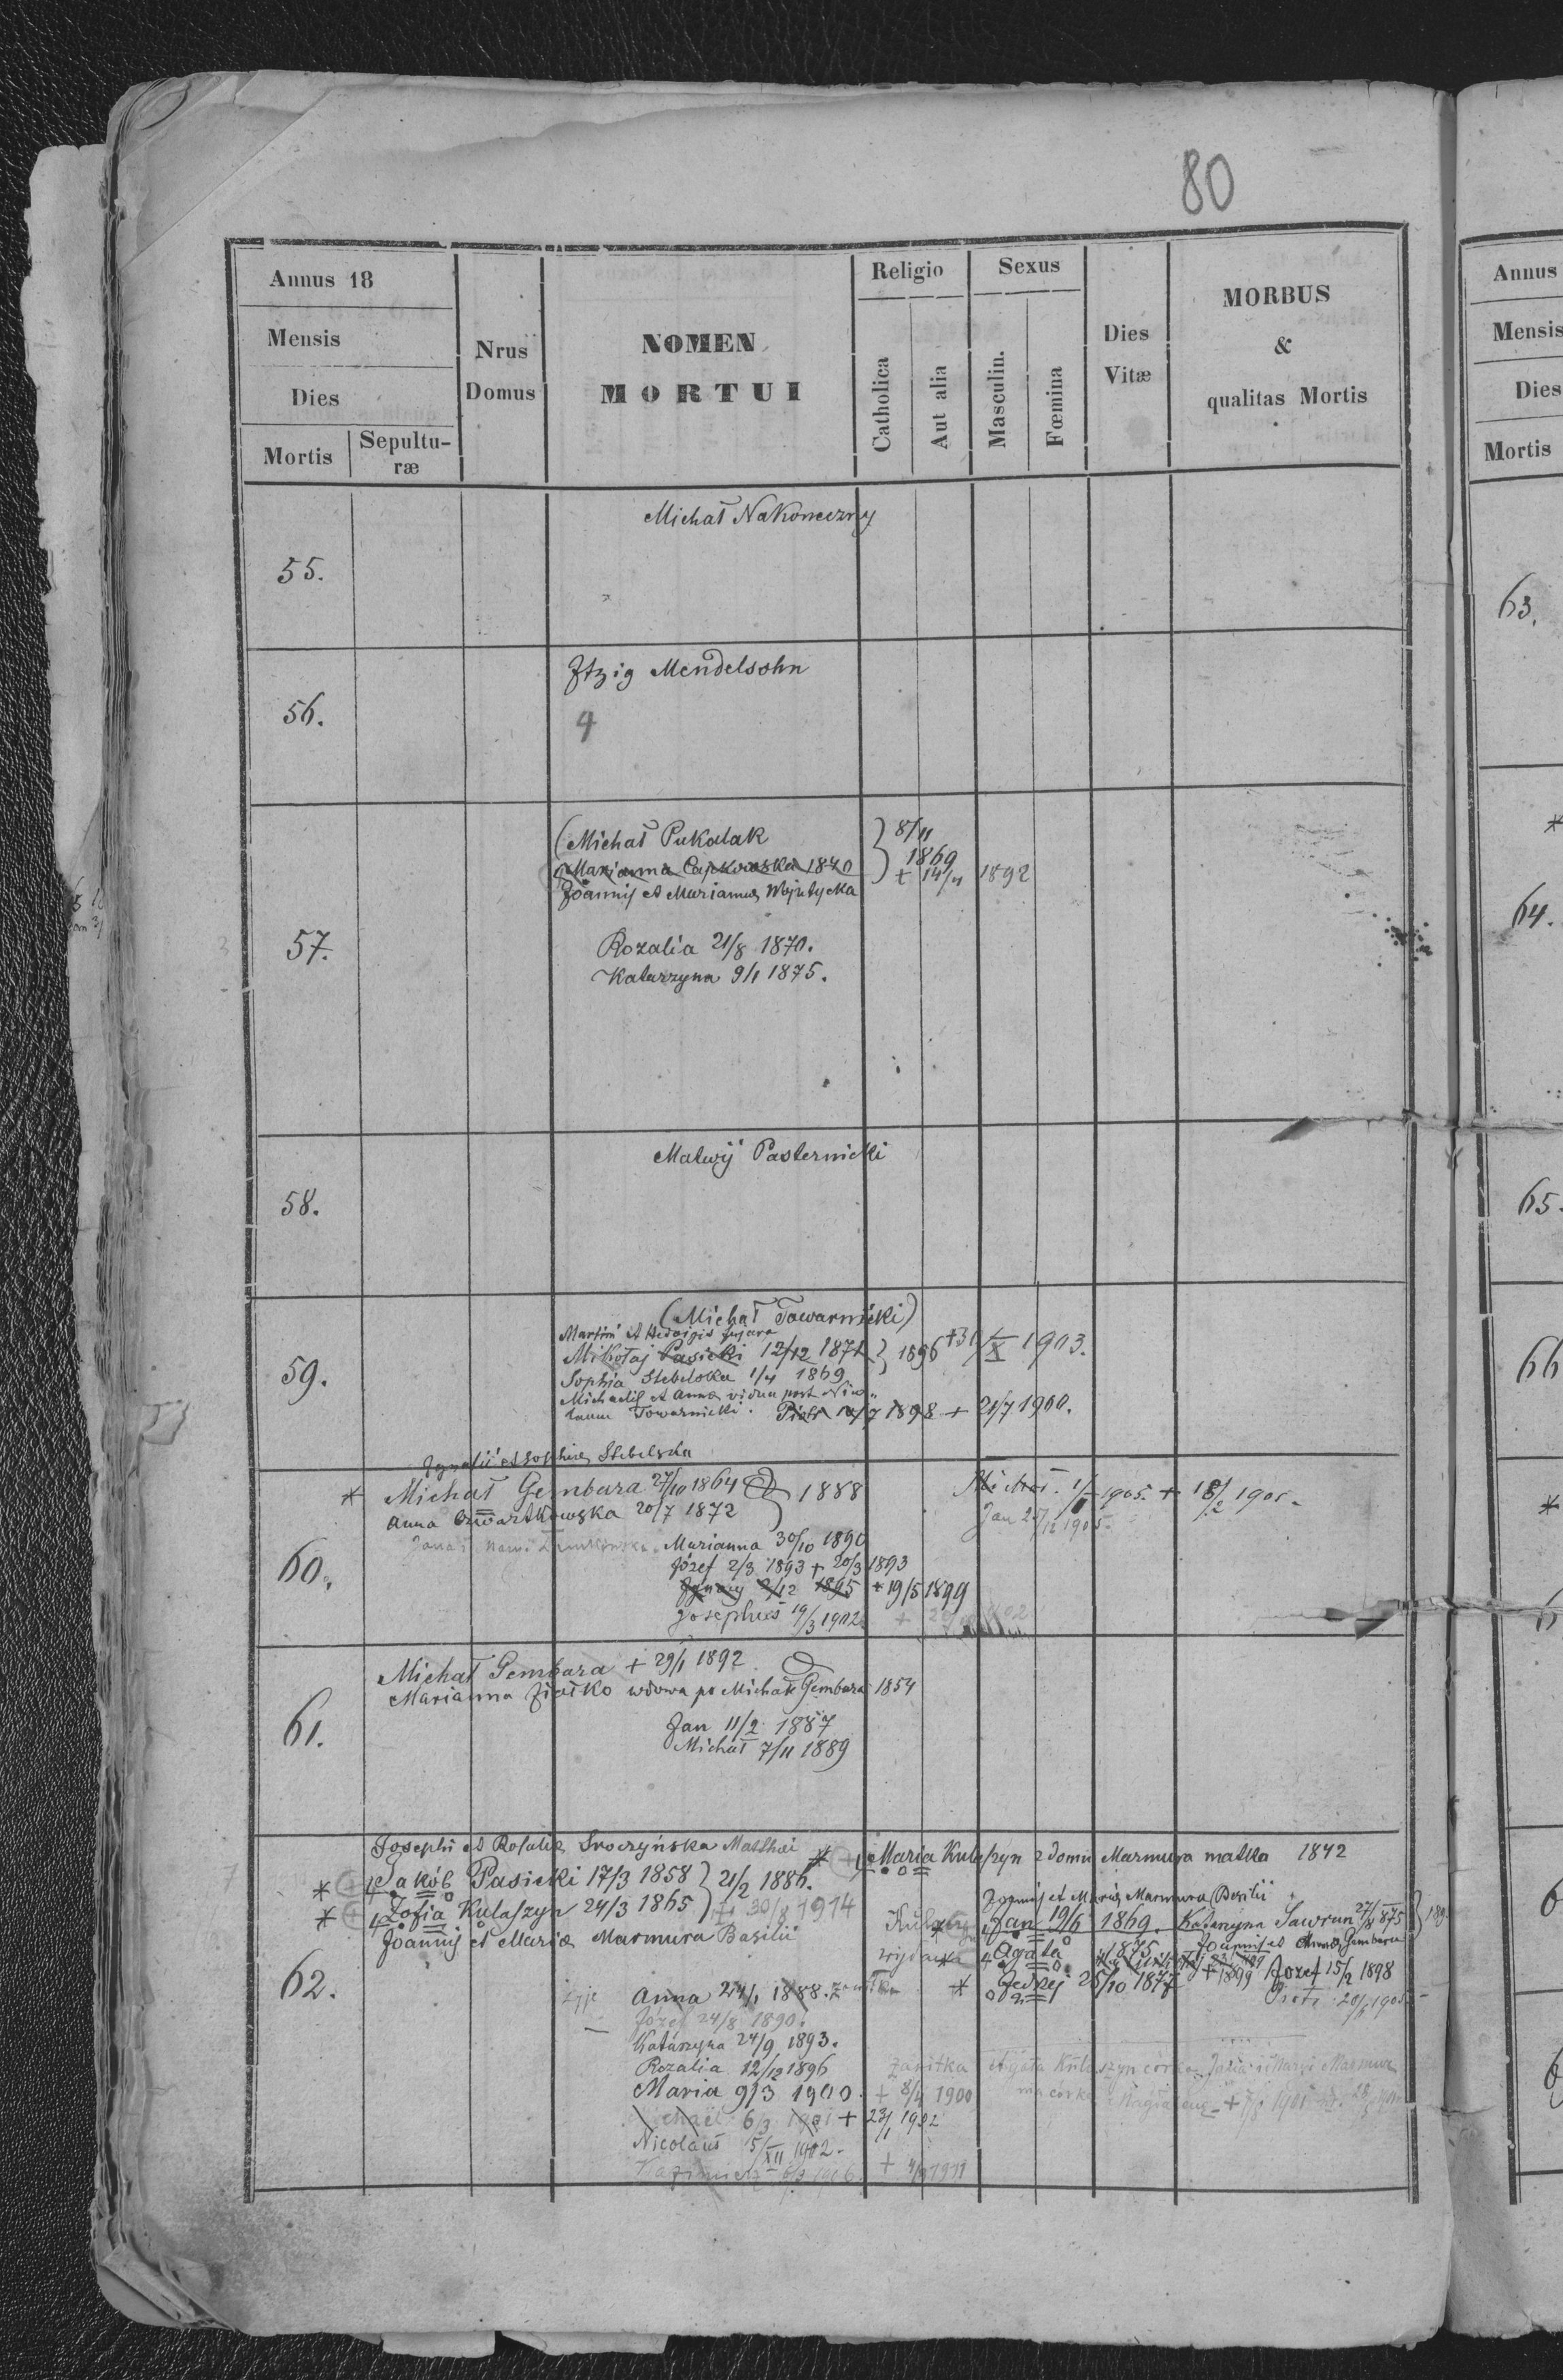 80
Annus 18
Mensis
Dies
Mortis
Sepultu-
ræ
Nrus
Domus
NOMEN
MORTUI
Religio
Catholica
Aut alia
Sexus
Masculin.
Fœmina
Dies
Vitæ
MORBUS
&
qualitas Mortis
55.
Michał Nakoneczny
56.
Itzig Mendelsohn
4
57.
(Michał Pukalak } 8/11
Marianna 1840 } 1869
+ 14/4 1892
Joannis et Mariannæ Wojutycka
Rozalia 21/8 1870.
Katarzyna 9/1 1875.
58.
Matwij Pasternicki
59.
(Michał Towarnicki)
Martini et Hedvigis
Mikołaj Pasicki 12/12 1871 } 1896 +31/X 1903.
Sophia Stebelska 1/4 1869
Michaelis et Annæ vidua post Nico-
laum Towarnicki. Piotr 1898 + 21/7 1900.
60.
Ignatii et Sophiæ Stebelska
* Michał Gembara 27/10 1864 } 1888
Anna 20/7 1872
Marianna 30/10 1890
Józef 2/3 1893 + 20/3 1893
Ignacy 2/12 1895 + 19/5 1899
Josephus 19/3 1902
Michał 1905. + 18/2 1905.
Jan 1905.
61.
Michał Gembara + 29/1 1892
Marianna Ziałko wdowa po Michale Gembara 1854
Jan 11/2 1887
Michał 7/11 1889
62.
Josephi et Rosaliæ Sroczyńska Matthæi
* Jakób Pasicki 17/3 1858 } 21/2 1886.
* Zofia Kulaszyn 24/3 1865 } 30/8 1914
Joannis et Mariæ Marmura Basilii
żyje Anna 24/1 1888.
Józef 24/8 1890.
Katarzyna 24/9 1893.
Rozalia 12/12 1896
Maria 9/3 1900. + 8/4 1900
Michael 6/3 1901 + 23/1 1902
Nicolaus 5/XII 1902.
Kazimierz 1906
* Maria Kulaszyn z domu Marmura matka 1842
Joannis et Mariæ Marmura Basilii
Jan 19/6 1869. Katarzyna Sawrun 27/8 875
Joannis et Annæ Gembara
Agata 1875
* Jędrzej 25/10 1877
+ 1899 Józef 15/2 1898
Piotr
Agata Kulaszyn córka Jana i Maryi Marmura
Annus
Mensis
Dies
Mortis
63.
64.
65.
66